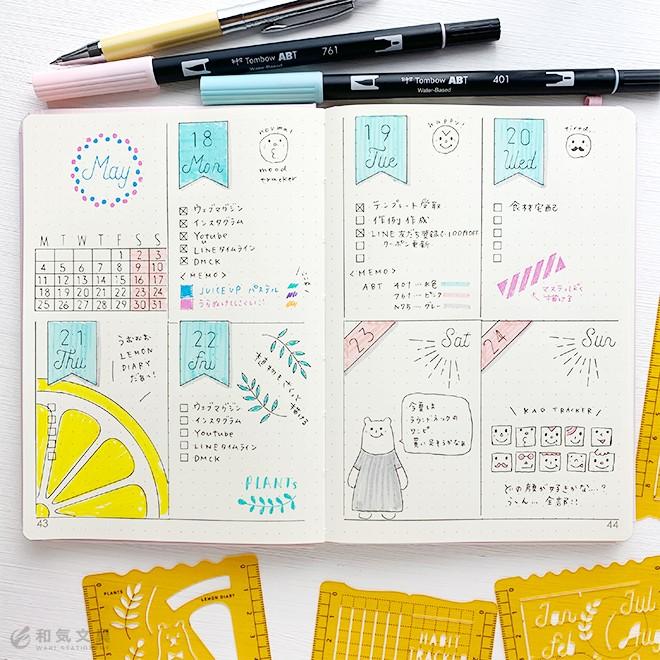 Tombow ABT
761
Water-Based
Tombow ABT
401
Water-Based
May
M T W T F S S
1 2 3
4 5 6 7 8 9 10
11 12 13 14 15 16 17
18 19 20 21 22 23 24
25 26 27 28 29 30 31
18
Mon
normal
mood
tracker
ウェブマガジン
インスタグラム
Yotube
u
LINEタイムライン
DMCK
<MEMO>
JUICE UP パステル
うらぬけしにくい!
19
Tue
happy!
テンプレート受取
作例作成
LINE 友だち登録で100円OFF
クーポン更新
<MEMO>
ABT 401…水色
761…ピンク
N75…グレー
20
Wed
tired..
食材宅配
マステルばくで
描ける
21
Thu
LEMON
DIARY
だぁい!
22
Fri
植物もさくっと描ける
ウェブマガジン
インスタグラム
Youtube
LINEタイムライン
DMCK
PLANTs
23
Sat
今夏は
ラウンドネックの
ワンピ
買い足そうかなぁ
24
Sun
\ KAO TRACKER /
どの顔が好きかな…?
うーん… 全部!!
43
44
PLANTS
LEMON DIARY
HABIT
TRACKER
Jan
Feb
Jul
Aug
和気文具
WAKI STATIONERY